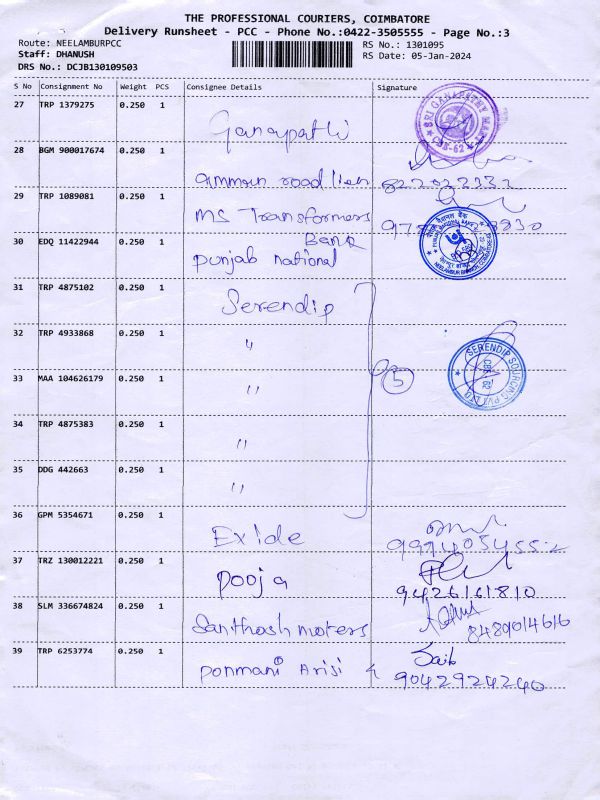 THE PROFESSIONAL COURIERS, COIMBATORE
Delivery Runsheet - PCC - Phone No.:0422-3505555 - Page No.:3
Route: NEELAMBURPCC
RS No.: 1301095
Staff: DHANUSH
RS Date: 05-Jan-2024
DRS No.: DCJB130109503
S No Consignment No Weight PCS Consignee Details Signature
27 TRP 1379275 0.250 1
Ganapathi
SRI GANAPATHY CBE-62
28 BGM 900017674 0.250 1
road
29 TRP 1089081 0.250 1
MS Transformers
30 EDQ 11422944 0.250 1
Bank
punjab national
31 TRP 4875102 0.250 1
Serendip
32 TRP 4933868 0.250 1
"
SERENDIP SOURCING PVT LTD
33 MAA 104626179 0.250 1
"
5
34 TRP 4875383 0.250 1
"
35 DDG 442663 0.250 1
"
36 GPM 5354671 0.250 1
Exide
9994054552
37 TRZ 130012221 0.250 1
pooja
9426161810
38 SLM 336674824 0.250 1
Santhosh moters
8489014616
39 TRP 6253774 0.250 1
ponmani Arisi
9042924240